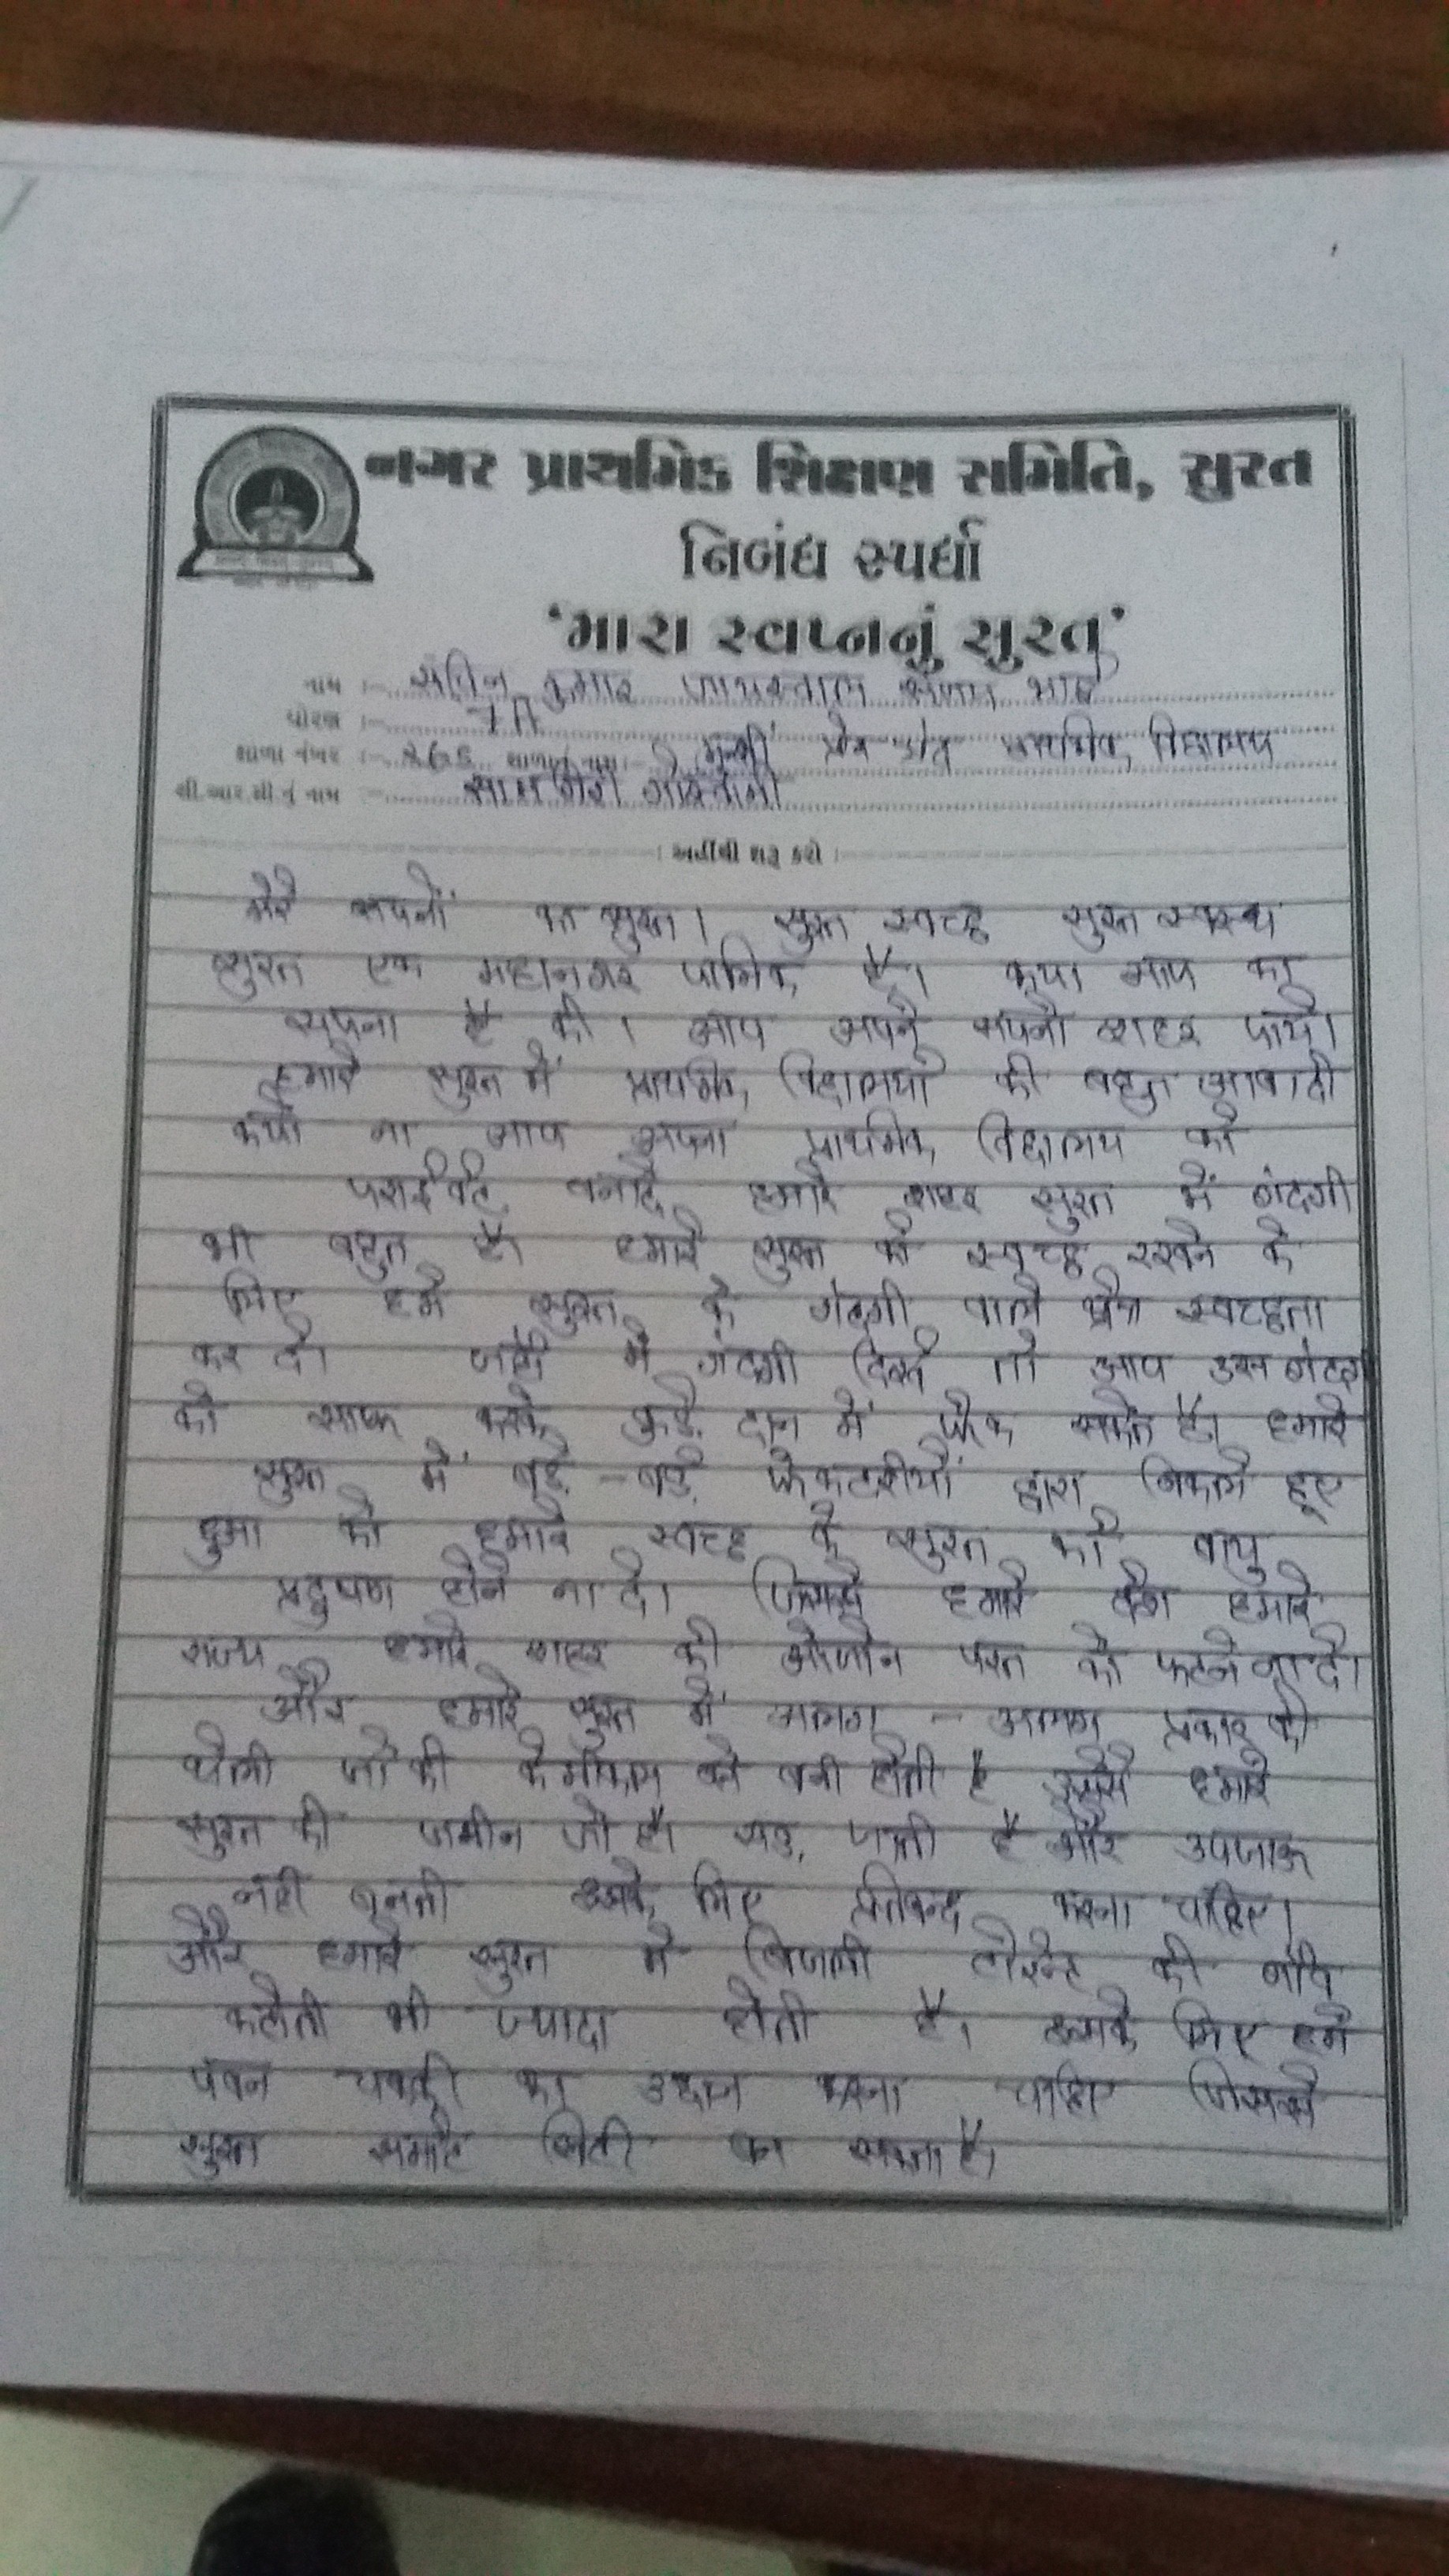 નગર પ્રાથમિક શિક્ષણ સમિતિ, સુરત
નિબંધ સ્પર્ધા
'મારા સ્વપ્નનું સુરત'
નામ :- कुमार भाई
ધોરણ :- 7
શાળા નંબર :- શાળાનું નામ :- मुन्शी प्रेम प्राथमिक विद्यालय
સી.આર.સી.નું નામ :-
। અહીંથી શરૂ કરો ।
मेरे सपनों का सुरत। सुरत स्वच्छ सुरत स्वस्थ
सुरत एक महानगर पालिक है। क्या आप का
सपना है की। आप अपने सपनो शहर पाये।
हमारे सुरत में प्राथमिक विद्यालयो की बहुत आबादी
क्यों ना आप अपना प्राथमिक विद्यालय को
पराईवेट बनादे हमारे शहर सुरत में गंदगी
भी बहुत है। हमारे सुरत को स्वच्छ रखने के
लिए हमे सुरत के गंदगी वाले क्षेत्र स्वच्छता
कर दे। जहाँ मे गंदगी दिखे तो आप उस गंदगी
को साफ करके कुड़े दान में फेक सकते है। हमारे
सुरत में बड़े-बड़े फेकटरीयों द्वारा निकले हूए
दुआ को हमारे स्वच्छ के सुरत को वायु
प्रदुषण होने ना दे। जिससे हमारे देश हमारे
राज्य हमारे शहर की ओजोन परत को फटने ना दे।
और हमारे सुरत में अलग-अलग प्रकार की
थेली जो की केमीकल से बनी होती है उससे हमारे
सुरत की जमीन जो है। सड़ जाती है और उपजाऊ
नही बनती इसके लिए प्रतिबन्द करना चाहिए।
और हमारे सुरत मे बिजली टोरेन्ट की
कटोती भी ज्यादा होती है। इसके लिए हमे
पवन चक्की का करना चाहिए जिससे
सुरत स्मार्ट सिटी बन सकता है।